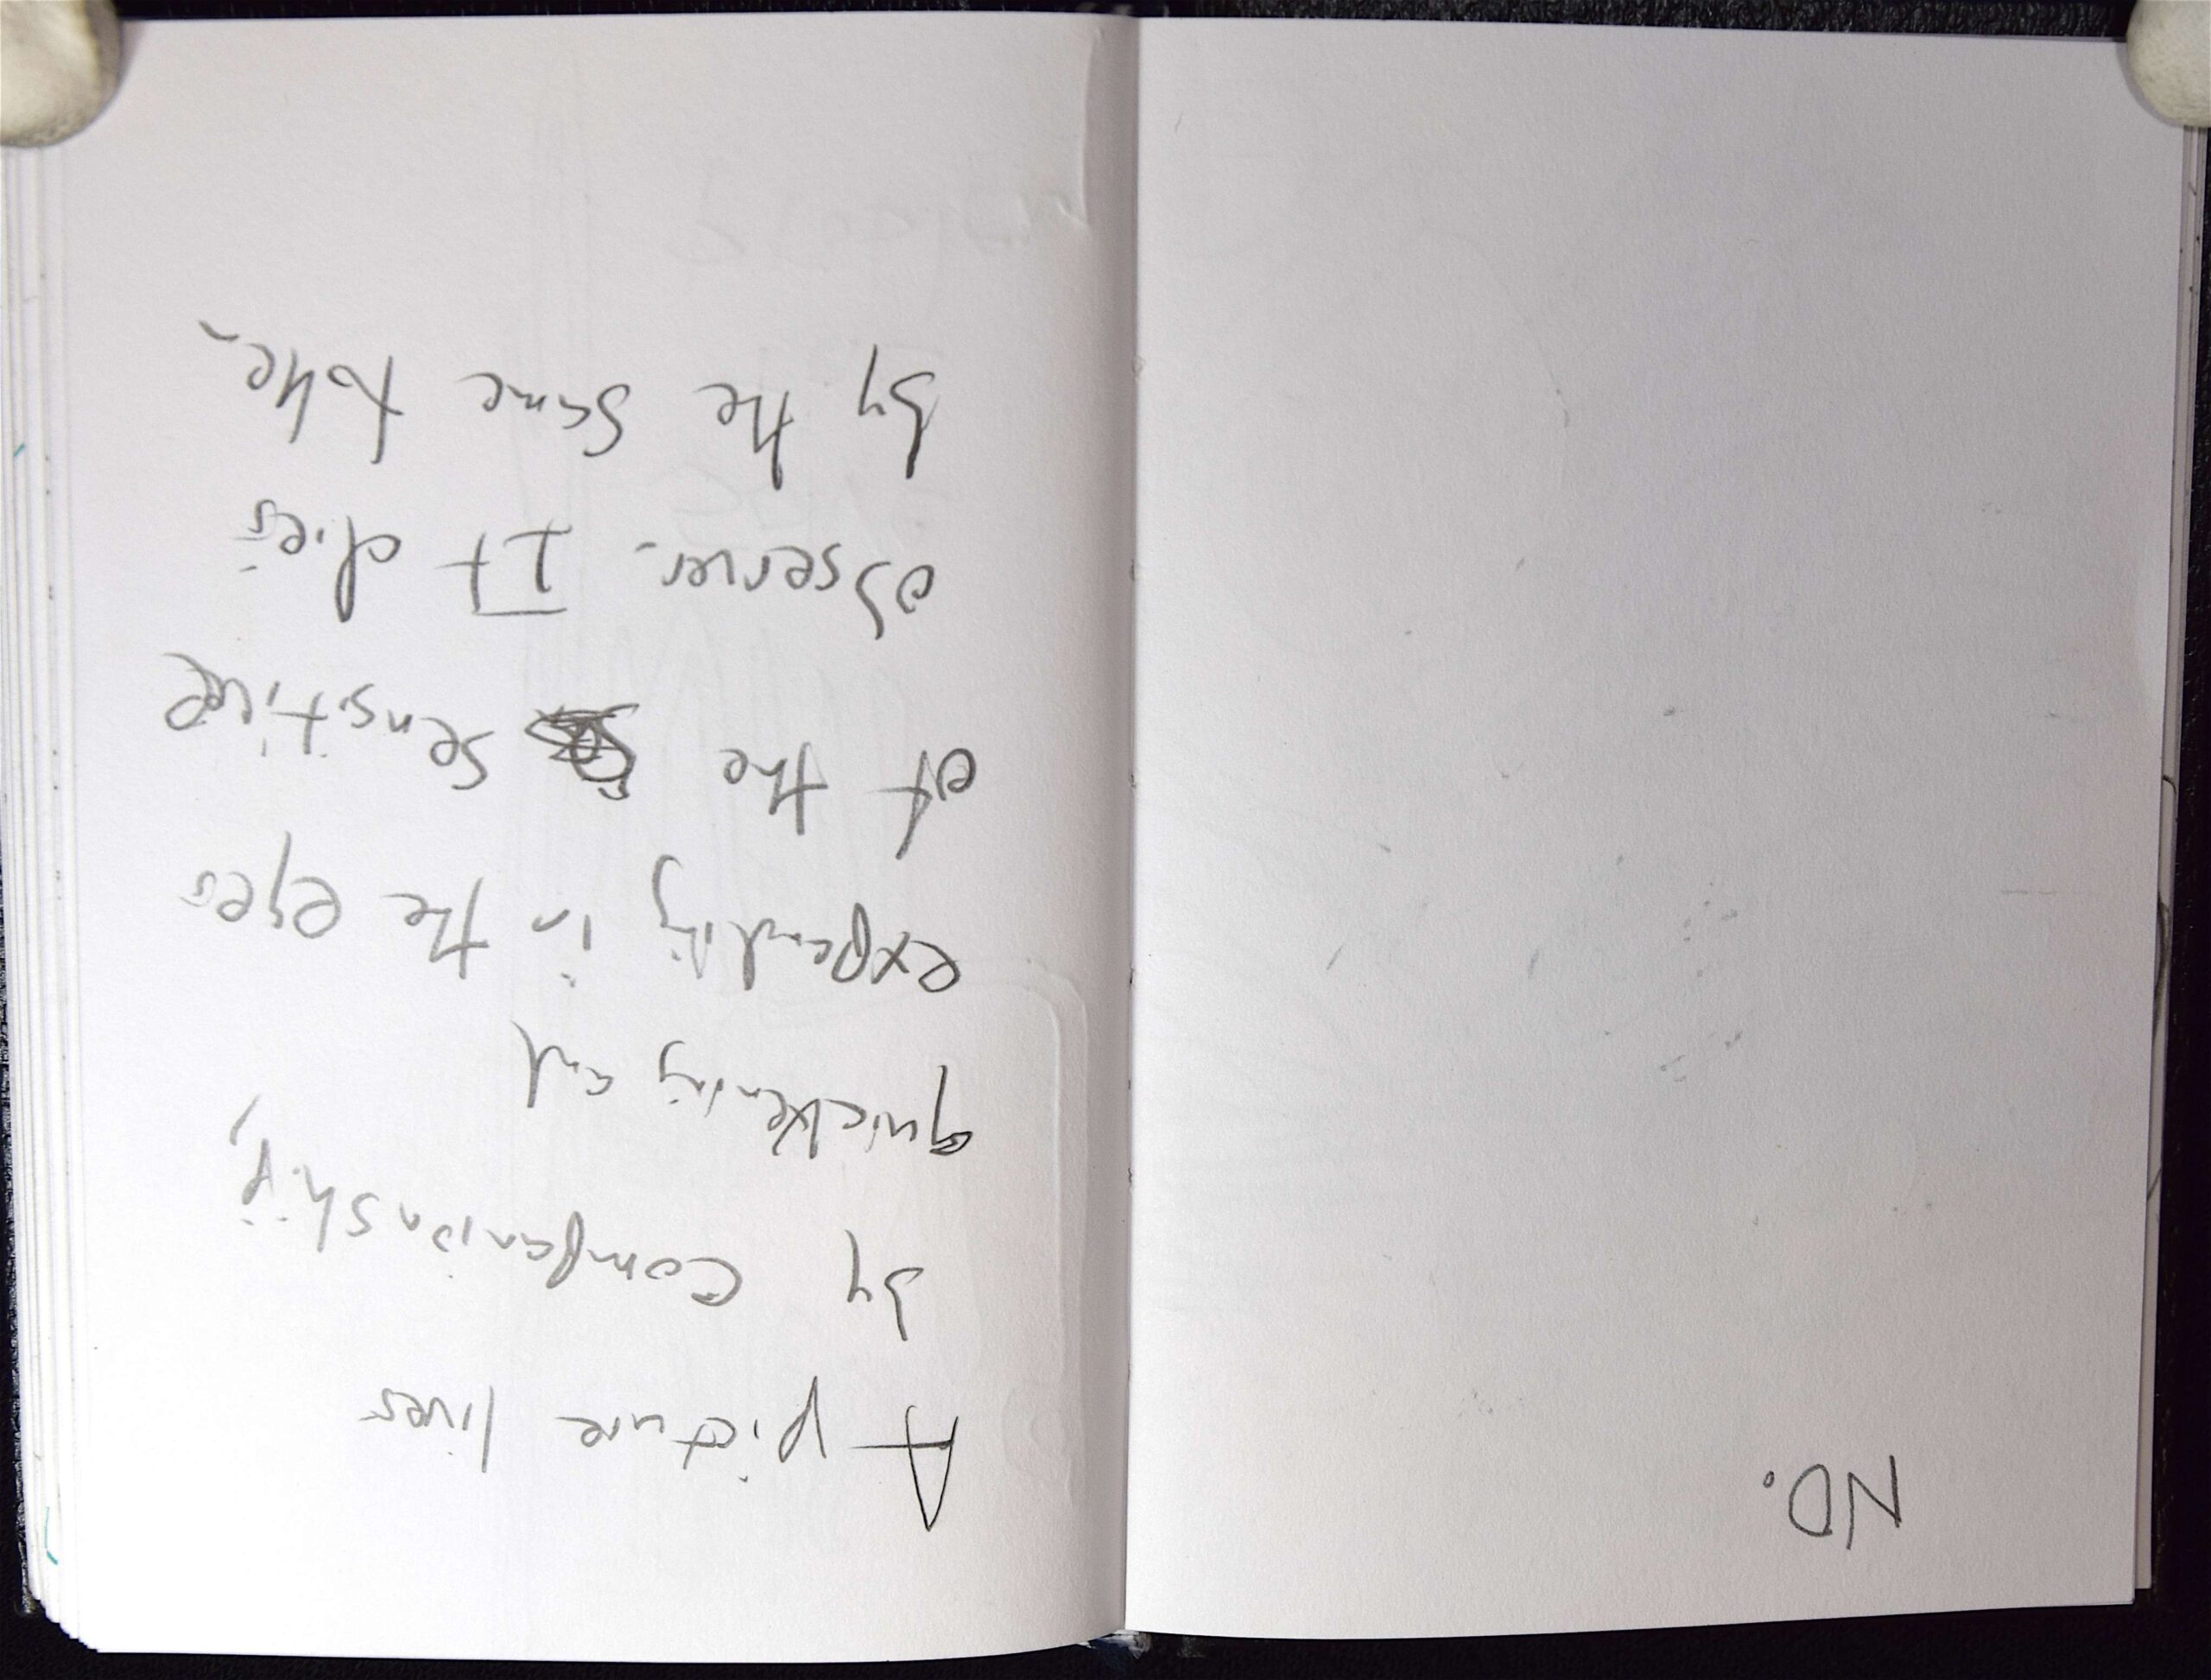 NO.
A picture lives
by companionship,
quickening and
expanding in the eyes
of the sensitive
observer. It dies
by the same token